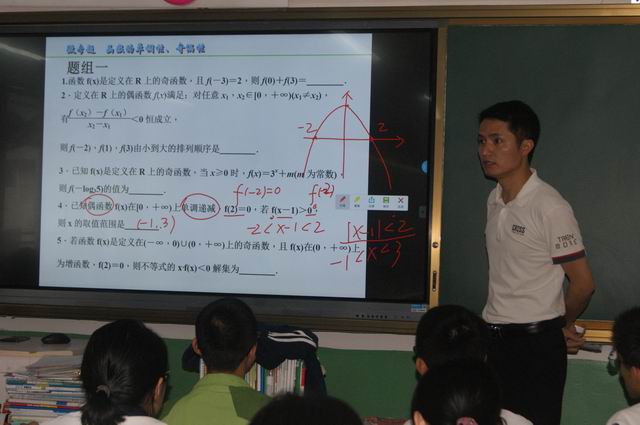 微专题 函数的单调性、奇偶性
题组一
1.函数 f(x)是定义在 R 上的奇函数，且 f(−3)=2，则 f(0)+f(3)=______.
2．定义在 R 上的偶函数 f(x)满足：对任意 x₁，x₂∈[0，+∞)(x₁≠x₂)，
有 f(x₂)−f(x₁)/x₂−x₁<0 恒成立，
则 f(−2)，f(1)，f(3)由小到大的排列顺序是______.
-2
2
3．已知 f(x)是定义在 R 上的奇函数，当 x≥0 时，f(x)=3ˣ+m(m 为常数)
则 f(−log₃5)的值为______.
f(-2)=0
f(2)
4．已知偶函数 f(x)在[0，+∞)上单调递减，f(2)=0，若 f(x−1)>0，
则 x 的取值范围是 (-1,3)
-2<x-1<2
|x-1|<2
-1<x<3
5．若函数 f(x)是定义在(−∞，0)∪(0，+∞)上的奇函数，且 f(x)在(0，+∞)上
为增函数，f(2)=0，则不等式的 x·f(x)<0 解集为______.